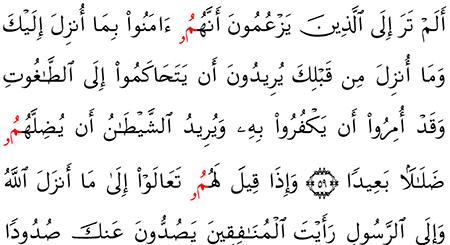 أَلَمۡ تَرَ إِلَى ٱلَّذِينَ يَزۡعُمُونَ أَنَّهُمُۥ ءَامَنُواْ بِمَا أُنزِلَ إِلَيۡكَ
وَمَا أُنزِلَ مِن قَبۡلِكَ يُرِيدُونَ أَن يَتَحَاكَمُواْ إِلَى ٱلطَّٰغُوتِ
وَقَدۡ أُمِرُواْ أَن يَكۡفُرُواْ بِهِۦ وَيُرِيدُ ٱلشَّيۡطَٰنُ أَن يُضِلَّهُمُۥ
ضَلَٰلَۢا بَعِيدٗا ٥٩ وَإِذَا قِيلَ لَهُمُۥ تَعَالَوۡاْ إِلَىٰ مَا أَنزَلَ ٱللَّهُ
وَإِلَى ٱلرَّسُولِ رَأَيۡتَ ٱلۡمُنَٰفِقِينَ يَصُدُّونَ عَنكَ صُدُودٗا